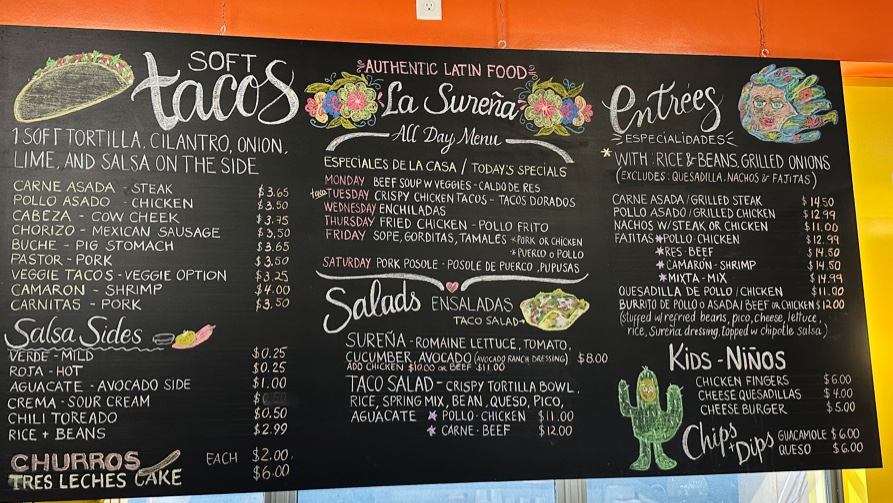 SOFT
tacos
1 SOFT TORTILLA, CILANTRO, ONION,
LIME, AND SALSA ON THE SIDE
CARNE ASADA - STEAK $3.65
POLLO ASADO - CHICKEN $3.50
CABEZA - COW CHEEK $3.75
CHORIZO - MEXICAN SAUSAGE $3.50
BUCHE - PIG STOMACH $3.65
PASTOR - PORK $3.50
VEGGIE TACOS - VEGGIE OPTION $3.25
CAMARON - SHRIMP $4.00
CARNITAS - PORK $3.50
Salsa Sides
VERDE - MILD $0.25
ROJA - HOT $0.25
AGUACATE - AVOCADO SIDE $1.00
CREMA - SOUR CREAM
CHILI TOREADO $0.50
RICE + BEANS $2.99
CHURROS EACH $2.00
TRES LECHES CAKE $6.00
AUTHENTIC LATIN FOOD
La Sureña
All Day Menu
ESPECIALES DE LA CASA / TODAY'S SPECIALS
MONDAY BEEF SOUP W VEGGIES - CALDO DE RES
TUESDAY CRISPY CHICKEN TACOS - TACOS DORADOS
WEDNESDAY ENCHILADAS
THURSDAY FRIED CHICKEN - POLLO FRITO
FRIDAY SOPE, GORDITAS, TAMALES *PORK OR CHICKEN
*PUERCO o POLLO
SATURDAY PORK POSOLE - POSOLE DE PUERCO, PUPUSAS
Salads ENSALADAS
TACO SALAD
SUREÑA - ROMAINE LETTUCE, TOMATO,
CUCUMBER, AVOCADO (AVOCADO RANCH DRESSING) $8.00
ADD CHICKEN $10.00 OR BEEF $11.00
TACO SALAD - CRISPY TORTILLA BOWL,
RICE, SPRING MIX, BEAN, QUESO, PICO,
AGUACATE * POLLO - CHICKEN $11.00
* CARNE - BEEF $12.00
Entrées
ESPECIALIDADES
*WITH: RICE & BEANS, GRILLED ONIONS
(EXCLUDES: QUESADILLA, NACHOS & FAJITAS)
CARNE ASADA/GRILLED STEAK $14.50
POLLO ASADO/GRILLED CHICKEN $12.99
NACHOS W/STEAK OR CHICKEN $11.00
FAJITAS *POLLO - CHICKEN $12.99
*RES - BEEF $14.50
*CAMARON - SHRIMP $14.50
*MIXTA - MIX $14.99
QUESADILLA DE POLLO / CHICKEN $11.00
BURRITO DE POLLO o ASADA/BEEF OR CHICKEN $12.00
(stuffed w/ refried beans, pico, cheese, lettuce,
rice, Sureña dressing, topped w chipotle salsa)
Kids - Niños
CHICKEN FINGERS $6.00
CHEESE QUESADILLAS $4.00
CHEESE BURGER $5.00
Chips + Dips GUACAMOLE $6.00
QUESO $6.00